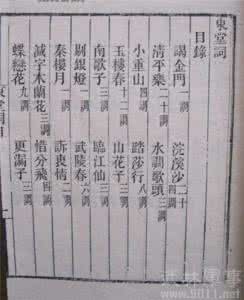 東堂詞
目錄
謁金門一調 浣溪沙二十四調
清平樂二十調 水調歌頭三調
小重山四調 踏莎行八調
玉樓春十二調 山花子二調
南歌子三調 臨江仙三調
剔銀燈二調 武陵春六調
秦樓月一調 訴衷情二調
減字木蘭花三調 惜分飛四調
蝶戀花九調 更漏子三調
東堂目 一
www.9011.net